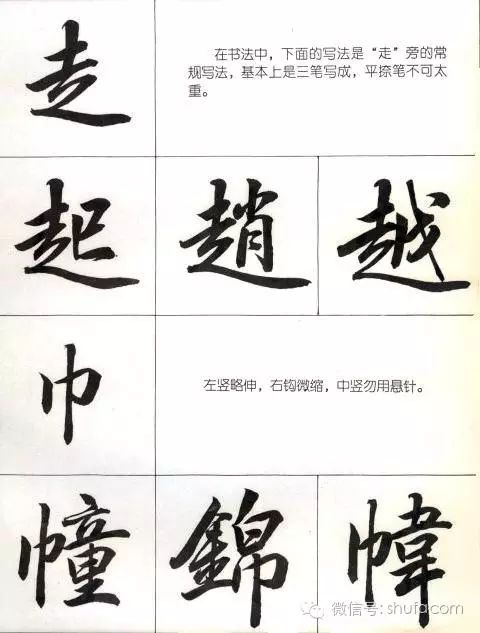 走
在书法中，下面的写法是“走”旁的常
规写法，基本上是三笔写成，平捺笔不可太
重。
起 趙 越
巾
左竖略伸，右钩微缩，中竖勿用悬针。
幢 錦 幃
微信号: shufa.com